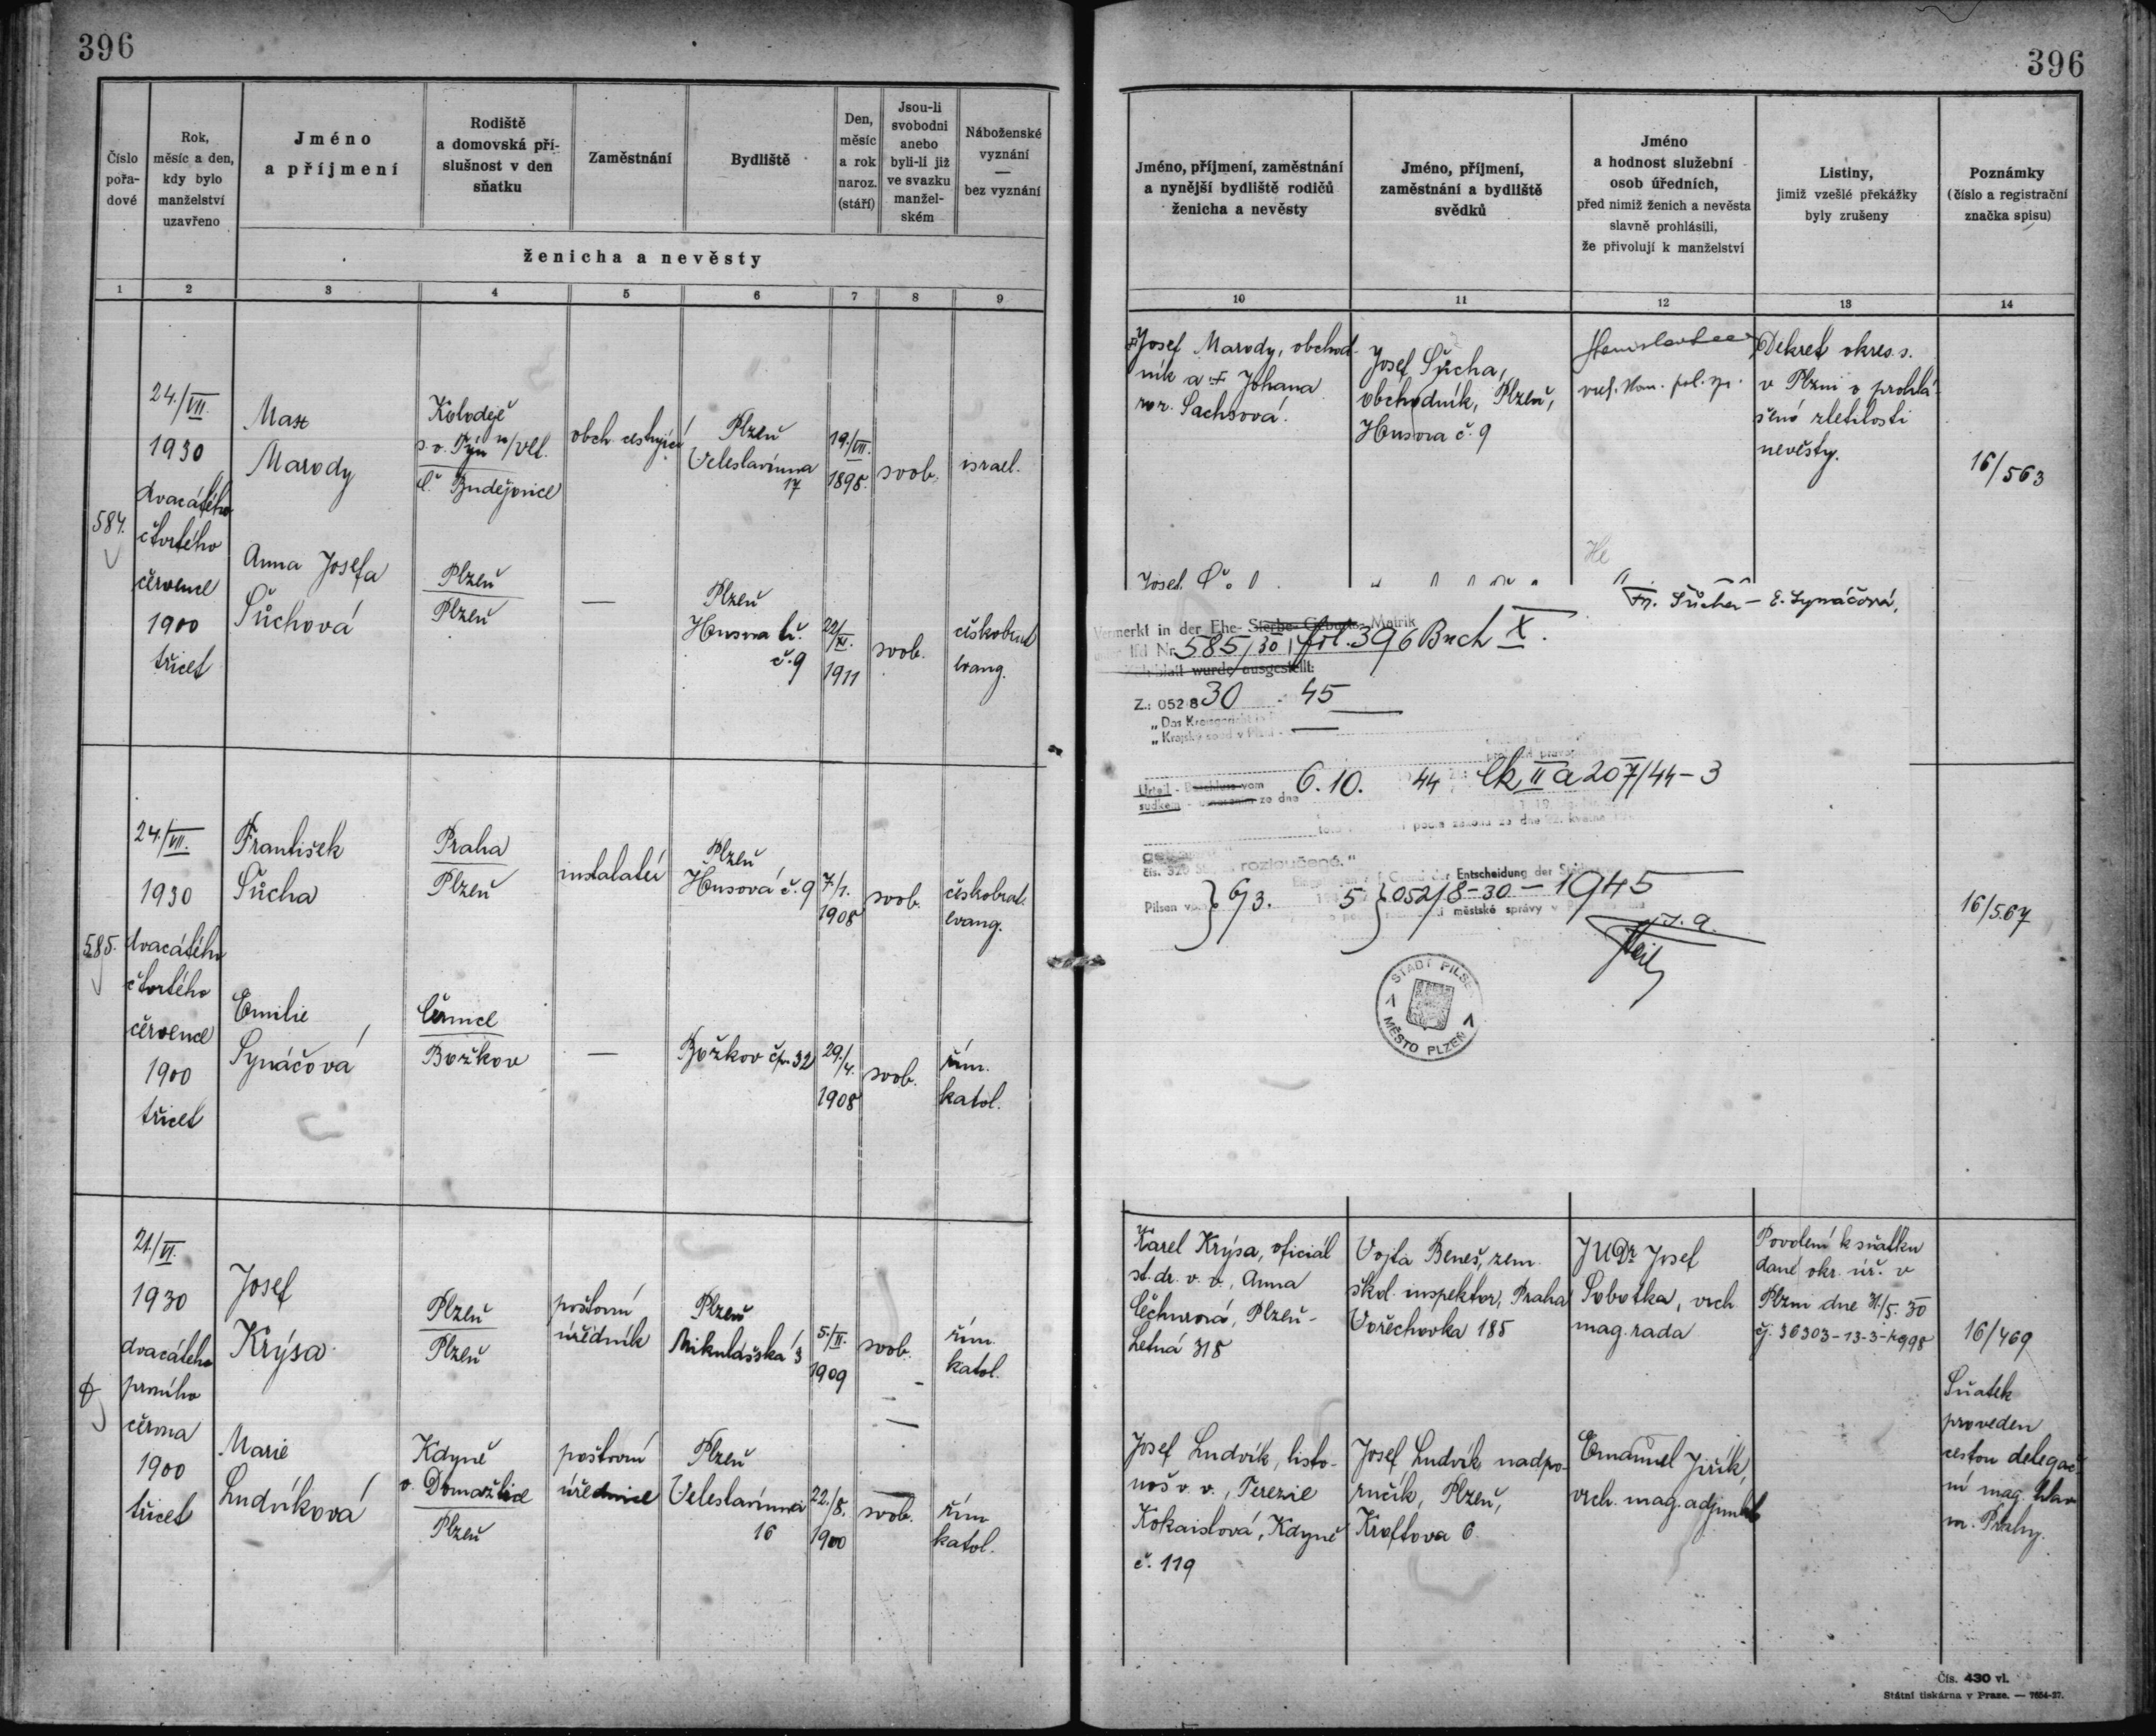 396
396
Číslo
pořa-
dové
Rok,
měsíc a den,
kdy bylo
manželství
uzavřeno
Jméno
a příjmení
Rodiště
a domovská pří-
slušnost v den
sňatku
Zaměstnání
Bydliště
Den,
měsíc
a rok
naroz.
(stáří)
Jsou-li
svobodni
anebo
byli-li již
ve svazku
manžel-
ském
Náboženské
vyznání
—
bez vyznání
ženicha a nevěsty
1 2 3 4 5 6 7 8 9
584.
24./VII.
1930
dvacátého
čtvrtého
července
1900
třicet
Max
Marody
Koloděje
n/Vlt.
Č. Budějovice
obch. cestující
Plzeň
Veleslavínova
17
19./VII.
1898.
svob.
israel.
Anna Josefa
Šůchová
Plzeň
Plzeň
—
Plzeň
Husova
č. 9
22/
XI.
1911
svob.
českobrat
evang.
585.
24./VII.
1930
dvacátého
čtvrtého
července
1900
třicet
František
Šůcha
Praha
Plzeň
instalatér
Plzeň
Husová č. 9
7./1.
1908
svob.
českobrat.
evang.
Emilie
Synáčová
Černice
Božkov
—
Božkov čp. 32
29./4.
1908
svob.
řím.
katol.
21./VI.
1930
dvacátého
prvního
června
1900
třicet
Josef
Krýsa
Plzeň
Plzeň
poštovní
úředník
Plzeň
Mikulášská 3
5./II.
1909
svob.
řím.
katol.
Marie
Ludvíková
Kdyně
o. Domažlice
Plzeň
poštovní
úřednice
Plzeň
Veleslavínova
16
22./8.
1900
svob.
řím.
katol.
Jméno, příjmení, zaměstnání
a nynější bydliště rodičů
ženicha a nevěsty
Jméno, příjmení,
zaměstnání a bydliště
svědků
Jméno
a hodnost služební
osob úředních,
před nimiž ženich a nevěsta
slavně prohlásili,
že přivolují k manželství
Listiny,
jimiž vzešlé překážky
byly zrušeny
Poznámky
(číslo a registrační
značka spisu)
10 11 12 13 14
Josef Marody, obchod-
ník a Johana
roz. Sachsová.
Josef Šůcha,
obchodník, Plzeň,
Husova č. 9
Dekret okres. s.
v Plzni o prohlá-
šení zletilosti
nevěsty.
16/563
Josef
Fr. Šůcha – E. Synáčová.
Vermerkt in der Ehe- Sterbe- Geburts- Matrik
lfd Nr. 585/30, fol. 396 Buch X.
wurde ausgestellt:
Z.: 052 8 30 - 45
„Das Kreisgericht
„Krajský soud v Plzni -
Urteil - Beschluss vom
sudkem - usnesením ze dne
6.10. 44 Ck II a 207/44-3
podle zákona ze dne 22. května
rozloučené."
Entscheidung der
městské správy v
Pilsen 6/3. 5 052/8-30-1945
STADT PILSEN
MĚSTO PLZEŇ
16/567
Karel Krýsa, oficiál
st. dr. v. v., Anna
Čechurová, Plzeň-
Letná 318
Vojta Beneš, zem.
škol. inspektor, Praha
Vořechovka 185
JUDr Josef
Sobotka, vrch.
mag. rada
Povolení k sňatku
dané okr. úř. v
Plzni dne 31./5. 30
čj. 36303-13-3-4998
16/469
Sňatek
proveden
cestou delegač-
ní mag. hlav
m. Prahy.
Josef Ludvík, listo-
noš v. v., Terezie
Kokaislová, Kdyně
č. 119
Josef Ludvík nadpo-
ručík, Plzeň,
Kroftova 6.
Emanuel Jiřík,
vrch. mag. adjunkt
Čís. 430 vl.
Státní tiskárna v Praze. — 7654-27.